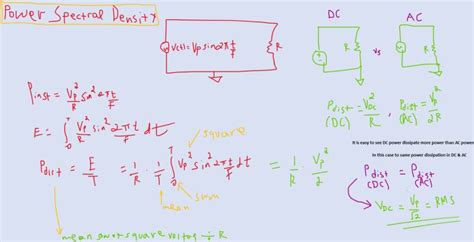 Power Spectral Density
V(t)=Vp sin2πt/T
R
DC
AC
R
vs
R
Pinst = Vp²/R sin² 2πt/T
E = ∫₀ᵀ Vp²/R sin² 2πt/T dt
square
Pdist = E/T = 1/R · 1/T ∫₀ᵀ Vp² sin² 2πt/T dt = 1/R · Vp²/2
sum
mean
mean of square voltage ÷ R
Pdist (DC) = VDC²/R , Pdist (AC) = Vp²/2R
It is easy to see DC power dissipate more power than AC power
In this case to same power dissipation in DC & AC
Pdist (DC) = Pdist (AC)
VDC = Vp/√2 = RMS